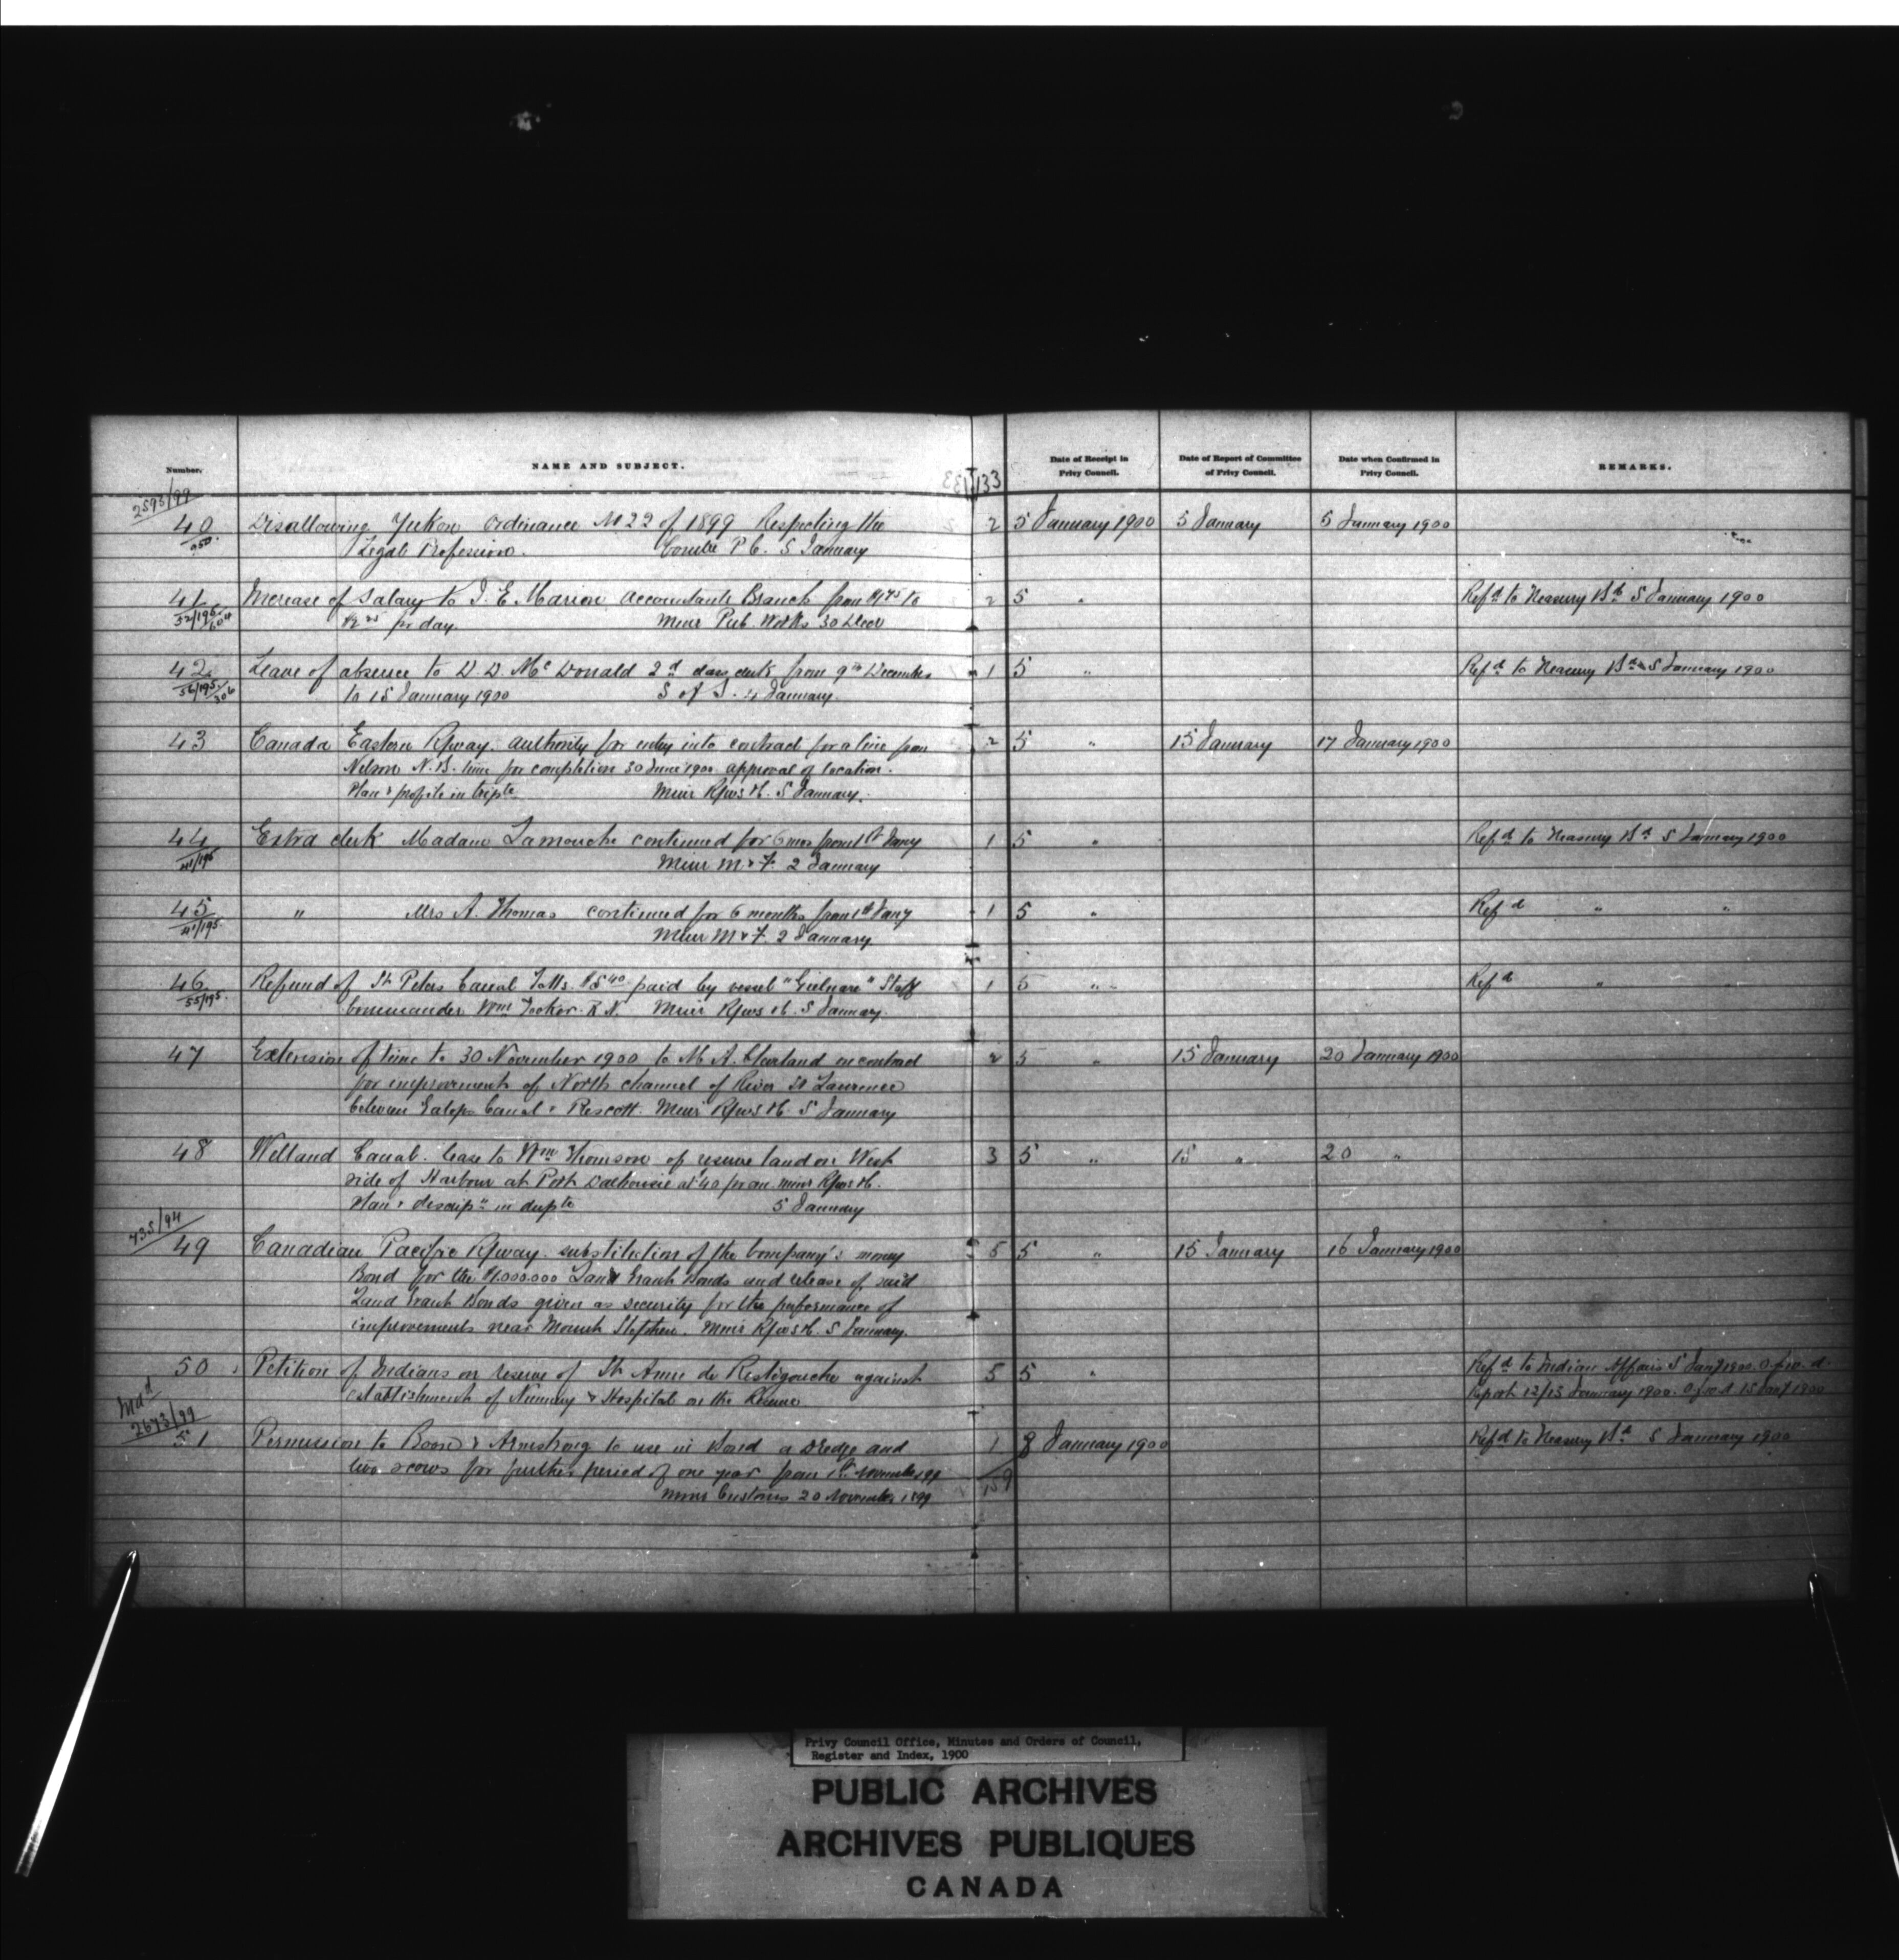 Number. NAME AND SUBJECT. 133 Date of Receipt in Privy Council. Date of Report of Committee of Privy Council. Date when Confirmed in Privy Council. REMARKS.
2593/99
40 Disallowing Yukon Ordinance No 22 of 1899 Respecting the 2 5 January 1900 5 January 5 January 1900
Legal Profession. Comtee P C. 5 January
41 Increase of salary to J. E. Marion Accountants Branch from $1.75 to 2 5 " Refd to Treasury Bd 5 January 1900
per day. Minr Pub. Works 30 Decr
42 Leave of absence to D. D. McDonald 2d class clerk from 9th December 1 5 " Refd to Treasury Bd 5 January 1900
56/195
to 15 January 1900 S of S. 4 January.
43 Canada Eastern Rway. authority for entry into contract for a line from 2 5 " 15 January 17 January 1900
Nelson N.B. time for completion 30 June 1900. approval of location.
Plan & profile in triple Minr Rlws &c. 5 January.
44 Extra clerk Madame Lamouche continued for 6 mos from 1st Jany 1 5 " Refd to Treasury Bd 5 January 1900
41/195
Minr M & F. 2 January
45 " Mrs A. Thomas continued for 6 months from 1st Jany 1 5 " Refd " "
41/195.
Minr M & F. 2 January
46 Refund of St Peters Canal Tolls $5.40 paid by vessel " " Staff 1 5 " Refd "
55/195.
Commander Wm Tooker. R.N. Minr Rlws &c. 5 January.
47 Extension of time to 30 November 1900 to M. A. Cleveland in contract 2 5 " 15 January 20 January 1900
for improvement of North channel of River St Lawrence
between Galops Canal & Prescott. Minr Rlws &c. 5 January
48 Welland Canal. lease to Wm Thomson of reserve land on West 3 5 " 15 " 20 "
side of Harbour at Port Dalhousie at $40 per an. Minr Rlws &c.
Plan & descripn in dupte 5 January
735/94
49 Canadian Pacific Rway. substitution of the Company's money 5 5 " 15 January 16 January 1900
Bond for the $1.000.000 Land Grant Bonds and release of said
Land Grant Bonds given as security for the performance of
improvements near Mount Stephen. Minr Rlws &c. 5 January.
50 Petition of Indians on reserve of St Anne de Restigouche against 5 5 " Refd to Indian Affairs 5 Jany 1900.
establishment of Nunnery & Hospital on the Reserve Report 12/13 January 1900. 15 Jany 1900
2673/99
51 Permission to Boone & Armstrong to use in Bond a Dredge and 1 8 January 1900 Refd to Treasury Bd 5 January 1900
two scows for further period of one year from 1st November 99
Minr Customs 20 November 1899
Privy Council Office, Minutes and Orders of Council,
Register and Index, 1900
PUBLIC ARCHIVES
ARCHIVES PUBLIQUES
CANADA